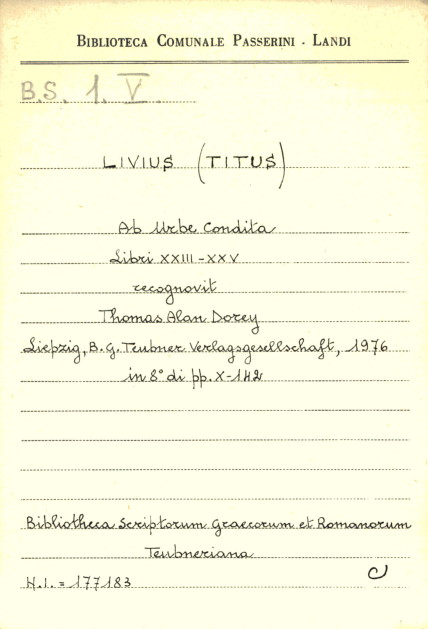 BIBLIOTECA COMUNALE PASSERINI - LANDI
B.S. 1. V.
LIVIUS (TITUS)
Ab Urbe Condita
Libri XXIII-XXV
recognovit
Thomas Alan Dorey
Liepzig, B.G. Teubner Verlagsgesellschaft, 1976
in 8° di pp. X-142
Bibliotheca Scriptorum Graecorum et Romanorum
Teubneriana
N.I. = 177183